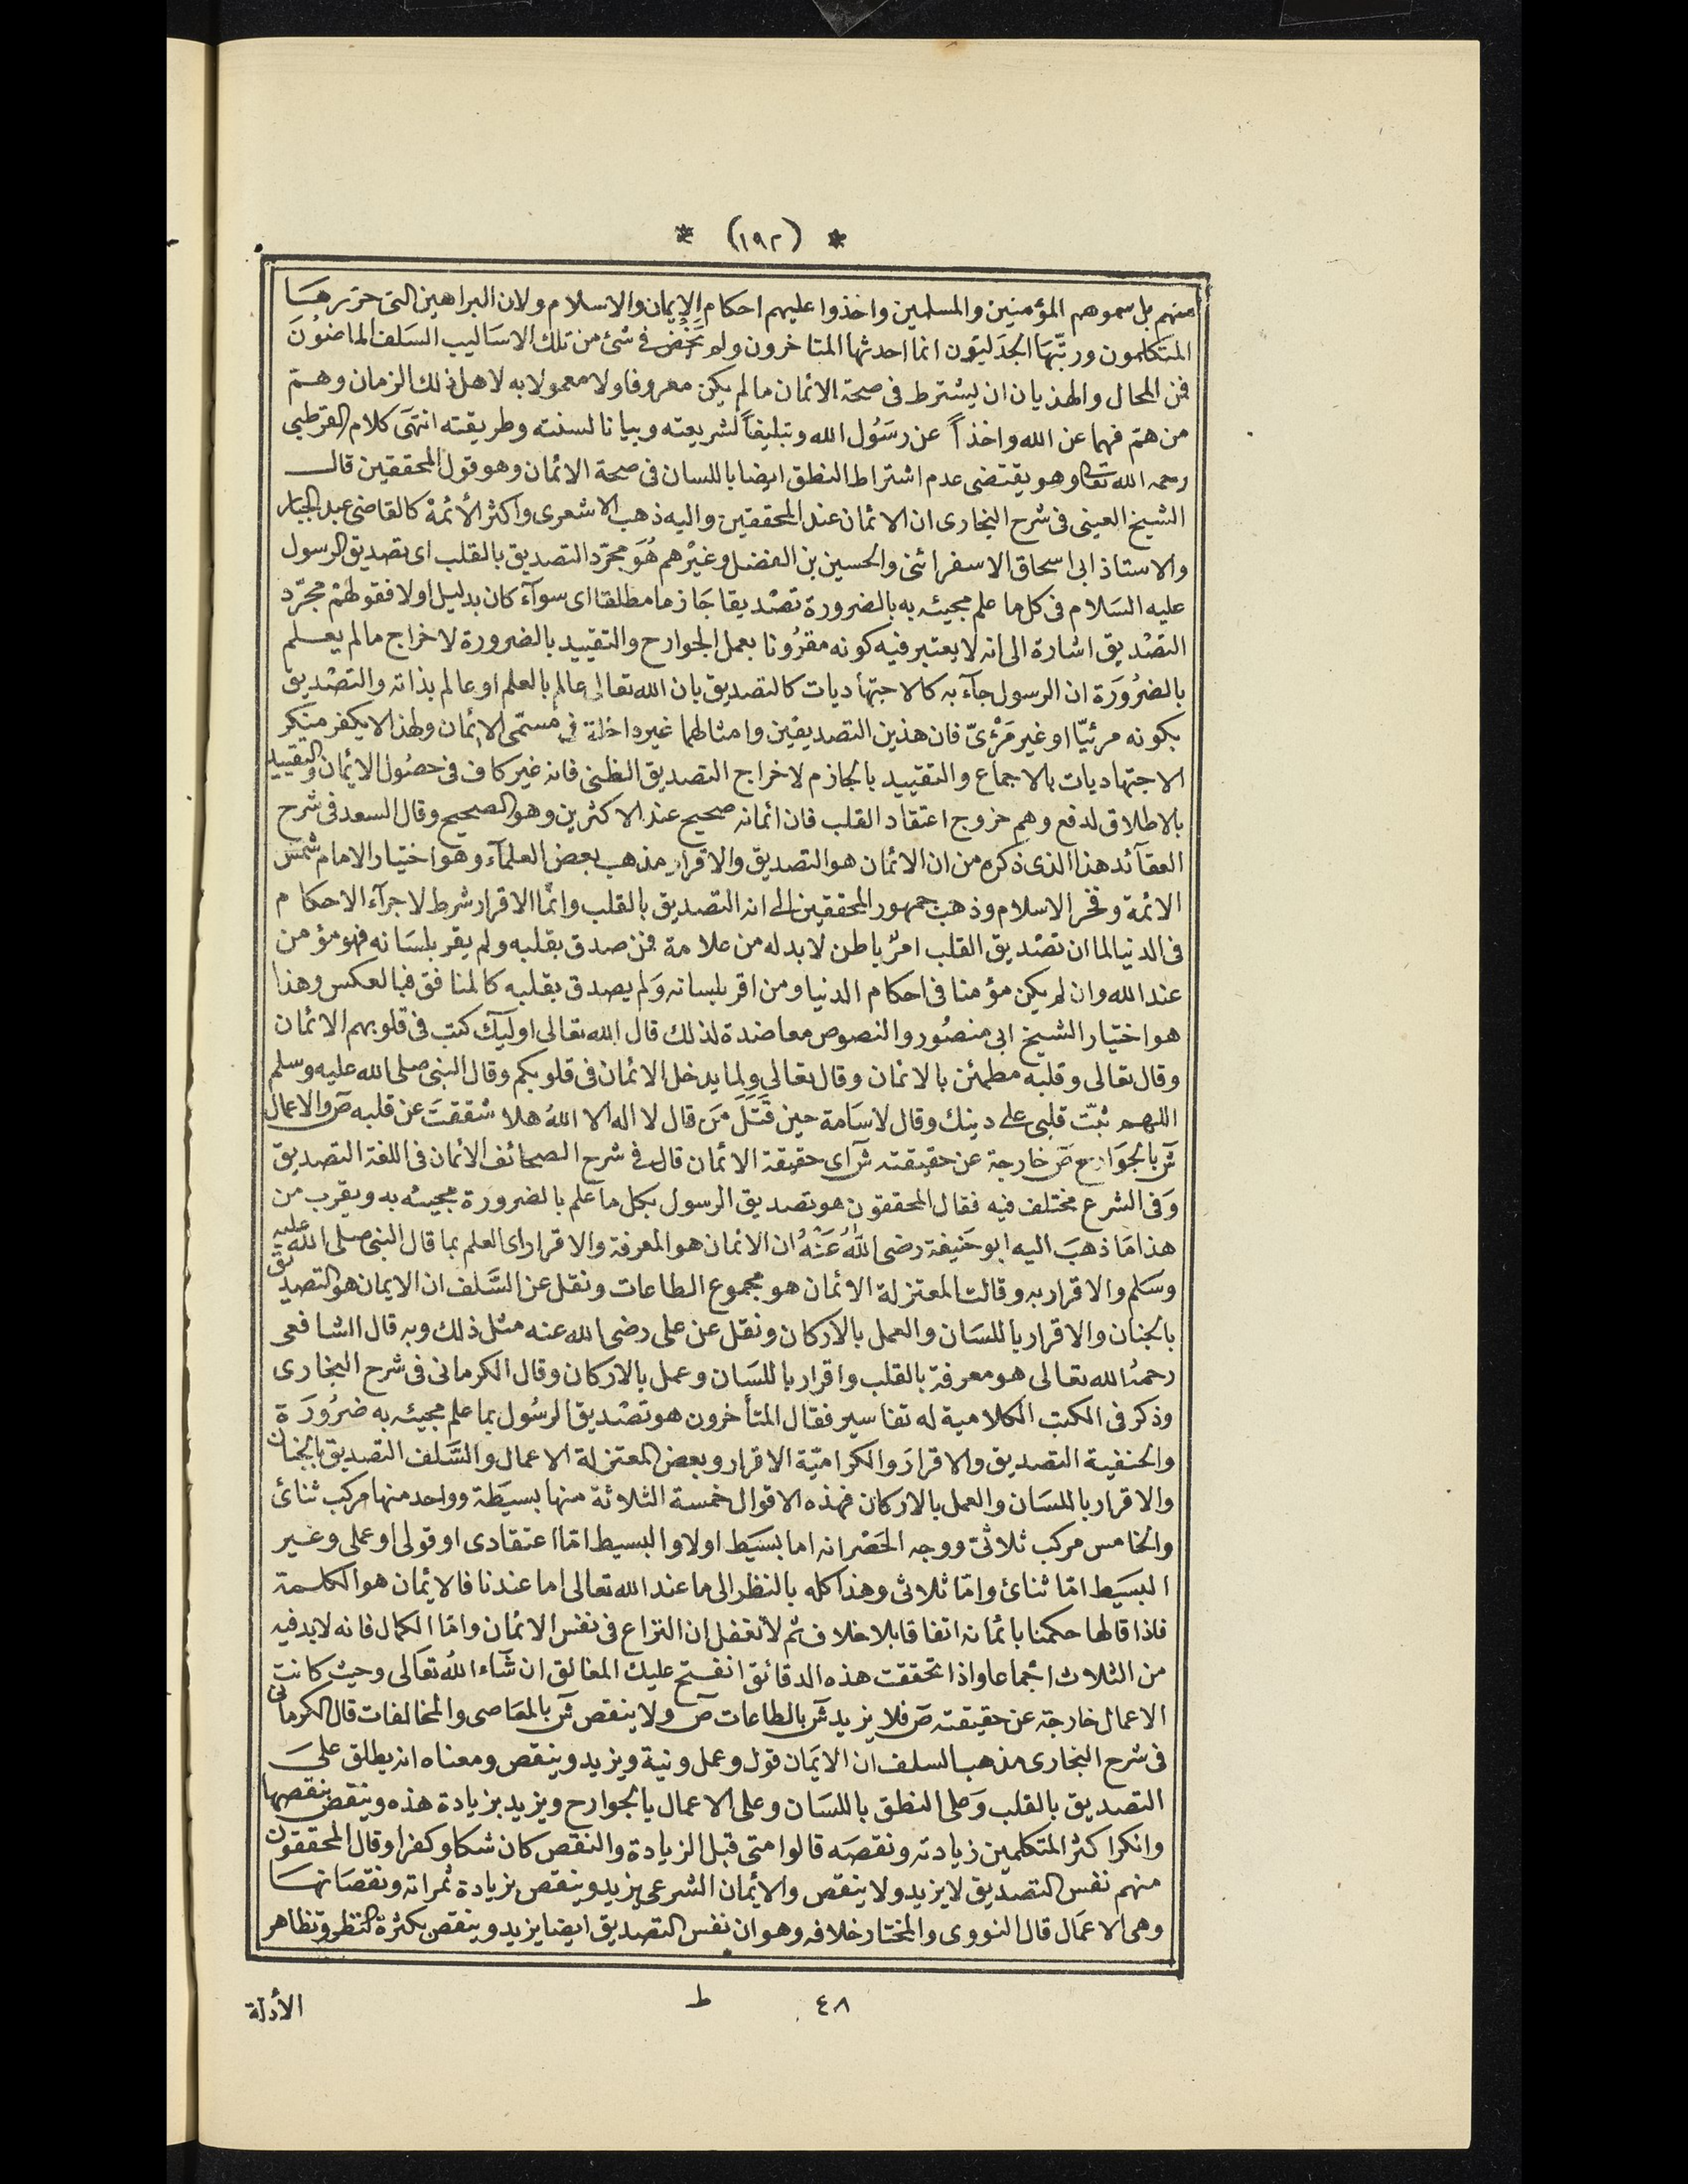 * (١٩٢) *
منهم بل سموهم المؤمنين والمسلمين واخذوا عليهم احكام الإيمان والاسلام ولان البراهين التى حررهَا
المتكلمون وربّبّهَا الجدَليّون انما احدثها المتاخرون ولم يَخُض فى شئ من تلك الاسَاليب السَلف الماضوُنَ
فمن المحال والهذيان ان يشترط فى صحة الائمان مالم يكن معروفا ولا معمولا به لاهل ذلك الزمان وهم
من هم فهما عن الله واخذاً عن رسَوُل الله وتبليغاً لشريعته وبيانا لسنته وطريقته انتهَى كلام القرطبى
رحمه الله تعَا وهو يقتضى عدم اشتراط النطق ايضا باللسان فى صحة الائمان وهو قول المحققين قال
الشيخ العينى فى شرح البخارى ان الائمان عند المحققين واليه ذهب الاشعرى واكثر الأئمة كالقاضى عبد الجبار
والاستاذ ابى اسحاق الاسفرائنى والحسين بن الفضل وغيْرهم هُوَ مجرّد التصديق بالقلب اى تصديق الرسول
عليه السَلام فى كل ما علم مجيئه به بالضرورة تصْديقا جَازما مطلقا اى سوآء كان بدليل اولا فقولهُمْ مجرّد
التصْديق اشارة الى انه لا يعتبر فيه كونه مقرُونا بعمل الجوارح والتقييد بالضرورة لاخراج مالم يعلم
بالضرُورَة ان الرسول جآء به كالاجتهاديات كالتصديق بان الله تعالى عالم بالعلم او عالم بذاته والتصْديق
بكونه مرئيّا او غير مَرْئىّ فان هذين التصديقين وامثالهما غير داخلة فى مسمّى الائمان ولهذا لا يكفر منكر
الاجتهاديات بالاجماع والتقييد بالجازم لاخراج التصديق الظنى فانه غير كاف فى حصُول الائمان والتقييد
بالاطلاق لدفع وهم خروج اعتقاد القلب فان ائمانه صحيح عند الاكثرين وهو الصحيح وقال السعد فى شرح
العقآئد هذا الذى ذكره من ان الائمان هو التصديق والاقرار مذهب بعض العلمآء وهو اختيار الامام شمس
الائمة وفخر الاسلام وذهب جمهور المحققين الى انه التصديق بالقلب وانّما الاقرار شرط لاجرآء الاحكام
فى الدنيا لما ان تصْديق القلب امرٌ باطن لا بد له من علامة فمن صدق بقلبه ولم يقر بلسَانه فهو مؤمن
عند الله وان لم يكن مؤمنا فى احكام الدنيا ومن اقر بلسانه وَلم يصدق بقلبه كالمنافق فبالعكس وهذا
هو اختيار الشيخ ابى منصُور والنصوص معاضدة لذلك قال الله تعالى اوليآك كتب فى قلوبهم الائمان
وقال تعالى وقلبه مطمئن بالائمان وقال تعالى ولما يدخل الائمان فى قلوبكم وقال النبى صلى الله عليه وسلم
اللهم ثبّت قلبى على دينك وقال لاسَامة حين قَتَلَ مَن قال لا اله الا اللهُ هلا شققتَ عن قلبه صٓ والاعمال
شٓ بالجَوَارح صٓ خارجة عن حقيقته شٓ اى حقيقة الائمان قال فى شرح الصحائف الائمان فى اللغة التصديق
وَفى الشرع مختلف فيه فقال المحققون هو تصديق الرسول بكل ما علم بالضرورة مجيئه به ويقرب من
هذا مَا ذهبَ اليه ابو حَنيفة رضى اللهُ عَنْهُ ان الائمان هو المعرفة والاقرار اى العلم بما قال النبى صلى الله عليه
وسَلم والاقرار به وقالت المعتزلة الائمان هو مجموع الطاعات ونقل عن السَّلف ان الايمان هو التصديق
بالجنان والاقرار باللسَان والعمل بالاركان ونقل عن على رضى الله عنه مثل ذلك وبه قال الشافعى
رحمهُ الله تعالى هو معرفة بالقلب واقرار باللسَان وعمل بالاركان وقال الكرمانى فى شرح البخارى
وذكر فى الكتب الكلامية له تفاسير فقال المتأخرون هو تصْديق الرسُول بما علم مجيئه به ضرُورَة
والحنفية التصديق والاقرارَ والكراميّة الاقرار وبعض المعتزلة الاعمال والسَّلف التصديق بالجنان
والاقرار باللسَان والعمل بالاركان فهذه الاقوال خمسة الثلاثة منها بسيَطة وواحد منها مركب ثنائ
والخامس مركب ثلاثىّ ووجه الحَصْر انه اما بسيَط اولا والبسيط امّا اعتقادى او قولى او عملى وغير
البسيَط امّا ثنائ وامّا ثلاثى وهذا كله بالنظر الى ما عند الله تعالى اما عندنا فالائمان هو الكلمة
فاذا قالها حكمنا بائمانه اتفاقا بلا خلاف ثم لا تغفل ان النزاع فى نفس الائمان وامّا الكمال فانه لا بد فيه
من الثلاث اجْماعا واذا تحققت هذه الدقائق انفتح عليك المغالق ان شَآء اللهُ تعَالى وحيث كانت
الاعمال خارجة عن حقيقته صٓ فلا يزيد شٓ بالطاعات صٓ ولا ينقص شٓ بالمعَاصى والمخالفات قال الكرمانى
فى شرح البخارى مذهب السلف ان الايمَان قول وعمل ونية ويزيد وينقص ومعناه انه يطلق علىَ
التصديق بالقلب وَعلى النطق باللسَان وعلى الاعمال بالجوارح ويزيد بزيادة هذه وينقص بنقصها
وانكر اكثر المتكلمين زيادته ونقصَه قالوا متى قبل الزيادة والنقص كان شكا وكفرا وقال المحققون
منهم نفس التصديق لا يزيد ولا ينقص والائمان الشرعى يزيد وينقص بزيادة ثمراته ونقصَانهَا
وهى الاعمَال قال النووى والمختار خلافه وهو ان نفس التصديق ايضا يزيد وينقص بكثرة النظر وتظاهر
٤٨ ط الأدلة